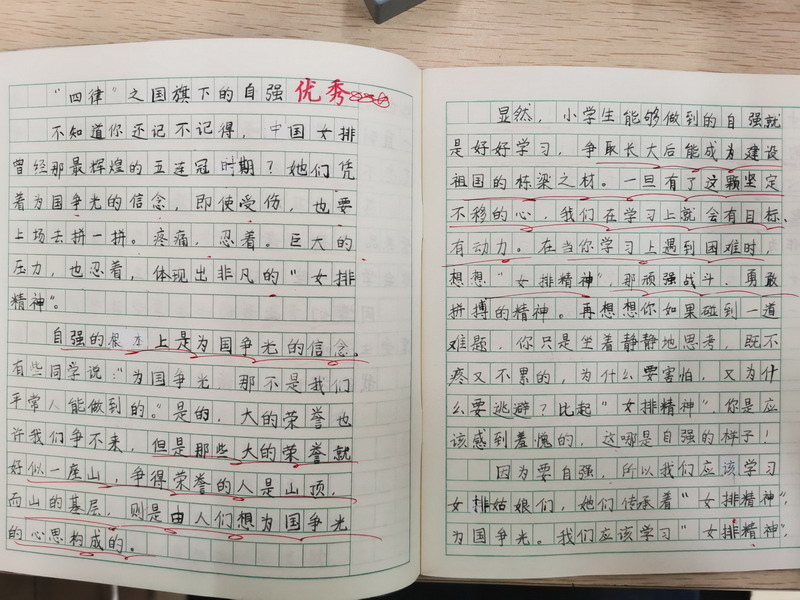 “四律”之国旗下的自强 优秀
不知道你还记不记得，中国女排
曾经那最辉煌的五连冠时期？她们凭
着为国争光的信念，即使受伤，也要
上场去拼一拼。疼痛，忍着。巨大的
压力，也忍着，体现出非凡的“女排
精神”。
自强的根本上是为国争光的信念。
有些同学说：“为国争光，那不是我们
平常人能做到的。”是的，大的荣誉也
许我们争不来，但是那些大的荣誉就
好似一座山，争得荣誉的人是山顶，
而山的基层，则是由人们想为国争光
的心思构成的。
显然，小学生能够做到的自强就
是好好学习，争取长大后能成为建设
祖国的栋梁之材。一旦有了这颗坚定
不移的心，我们在学习上就会有目标、
有动力。在当你学习上遇到困难时，
想想“女排精神”，那顽强战斗、勇敢
拼搏的精神。再想想你如果碰到一道
难题，你只是坐着静静地思考，既不
疼又不累的，为什么要害怕，又为什
么要逃避？比起“女排精神”，你是应
该感到羞愧的，这哪是自强的样子！
因为要自强，所以我们应该学习
女排姑娘们，她们传承着“女排精神”，
为国争光。我们应该学习“女排精神”，